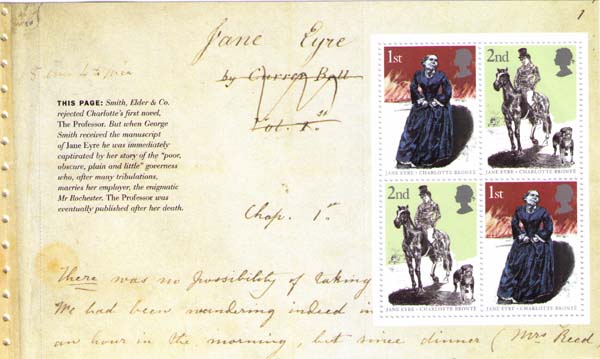 1
Jane Eyre
by Currer Bell
Vol. 1.st
THIS PAGE: Smith, Elder & Co.
rejected Charlotte's first novel,
The Professor. But when George
Smith received the manuscript
of Jane Eyre he was immediately
captivated by her story of the "poor,
obscure, plain and little" governess
who, after many tribulations,
marries her employer, the enigmatic
Mr Rochester. The Professor was
eventually published after her death.
Chap. 1.st
There was no possibility of taking
We had been wandering indeed in
an hour in the morning, but since dinner (Mrs Reed,
1st
JANE EYRE · CHARLOTTE BRONTË
2nd
JANE EYRE · CHARLOTTE BRONTË
2nd
JANE EYRE · CHARLOTTE BRONTË
1st
JANE EYRE · CHARLOTTE BRONTË